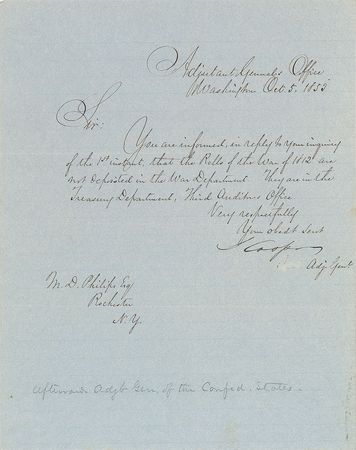 Adjutant General's Office
Washington Oct. 5. 1855
Sir:
You are informed, in reply to your inquiry
of the 1st instant, that the Rolls of the War of 1812 are
not deposited in the War Department. They are in the
Treasury Department, Third Auditor's Office
Very respectfully
Your obedt servt
S Cooper
Adj. Genl.
M. D. Philips Esq
Rochester
N. Y.
Afterwards Adjt Gen. of the Confed. States.